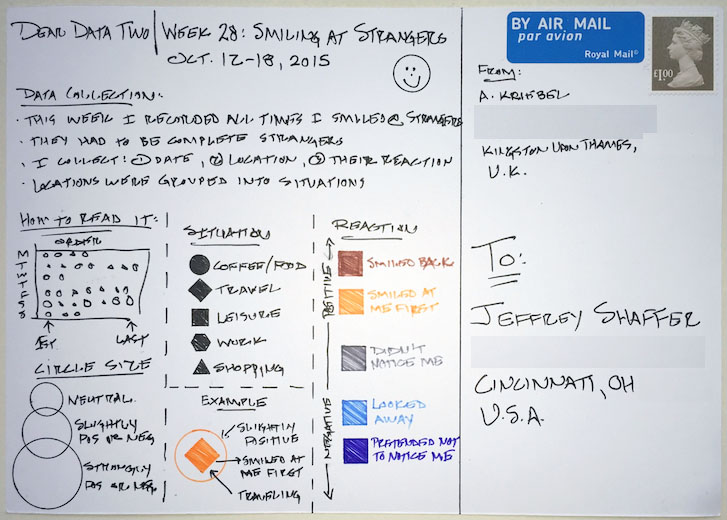 DEAR DATA TWO
WEEK 28: SMILING AT STRANGERS
OCT. 12-18, 2015
DATA COLLECTION:
· THIS WEEK I RECORDED ALL TIMES I SMILED @ STRANGERS
· THEY HAD TO BE COMPLETE STRANGERS
· I COLLECT: ① DATE, ② LOCATION, ③ THEIR REACTION
· LOCATIONS WERE GROUPED INTO SITUATIONS
HOW TO READ IT:
ORDER
M
T
W
T
F
S
S
1ST
LAST
CIRCLE SIZE
NEUTRAL
SLIGHTLY
POS OR NEG
STRONGLY
POS OR NEG
SITUATION
COFFEE/FOOD
TRAVEL
LEISURE
WORK
SHOPPING
EXAMPLE
SLIGHTLY
POSITIVE
SMILED AT
ME FIRST
TRAVELING
REACTION
POSITIVE
NEGATIVE
SMILED BACK
SMILED AT
ME FIRST
DIDN'T
NOTICE ME
LOOKED
AWAY
PRETENDED NOT
TO NOTICE ME
BY AIR MAIL
par avion
Royal Mail®
£1.00
FROM:
A. KRIEBEL
KINGSTON UPON THAMES,
U.K.
TO:
JEFFREY SHAFFER
CINCINNATI, OH
U.S.A.